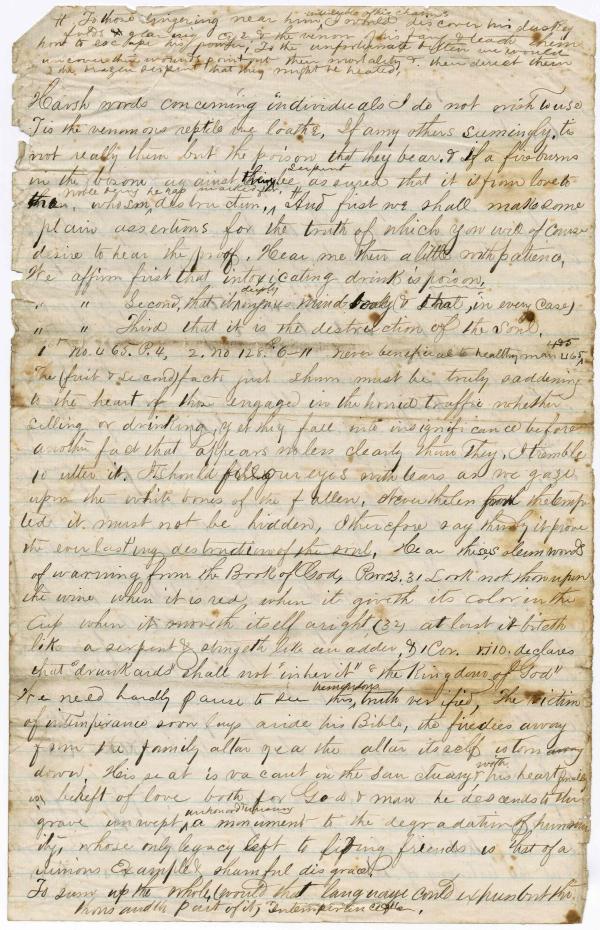 # To those lingering near him, I would discover his dusky
folds & glaring eyes & the venom of his fang & teach them
how to escape his power, To the unfortunate bitten ones would
uncover their wounds point out their mortality & then direct them
to the brazen serpent that they might be healed.
Harsh words concerning individuals I do not wish to use
Tis the venomous reptile we loathe, If any others seemingly, tis
not really them but the poison that they bear. & if a fire burns
in the bosom against serpent be assured that it is from love to
whose destruction, # And first we shall make some
plain assertions for the truth of which you will of course
desire to hear the proof. Hear me then a little with patience,
We affirm first that intoxicating drink is poison,
" " Second, that it injures deeply mind body & that, in every case,
" " Third that it is the destruction of the soul.
1st no. 465. P. 4, 2. no 128. P. 6-11 never beneficial to healthy man 465
The (first & second) facts just shown must be truly saddening
to the heart of those engaged in the horrid traffic whether
selling or drinking, yet they fall into insignificance before
another fact that appears no less clearly than they, I tremble
to utter it. It should fill our eyes with tears as we gaze
upon the white bones of the fallen, Nevertheless the temp-
ted it must not be hidden, I therefore say thirdly it proves
the everlasting destruction of the soul, Hear these solemn words
of warning from the Book of God, Prov 23.31 Look not thou upon
the wine when it is red when it giveth its color in the
cup when it moveth itself aright (32) at last it biteth
like a serpent & stingeth like an adder, & 1 Cor. VI 10. declares
that "drunkards" shall not "inherit" "the Kingdom of God"
We need hardly pause to see this, truth verified, The victim
of intemperance soon lays aside his Bible, the fire dies away
from the family altar yea the altar itself is torn
down, His seat is vacant in the Sanctuary & his heart
is bereft of love both for God & man he descends to the
grave unwept, a monument to the degradation of human-
ity, whose only legacy left to living friends is that of a
vicious example & shameful disgrace.
To sum up the whole, (would that language could express but the
thousandth part of it,) Intemperance